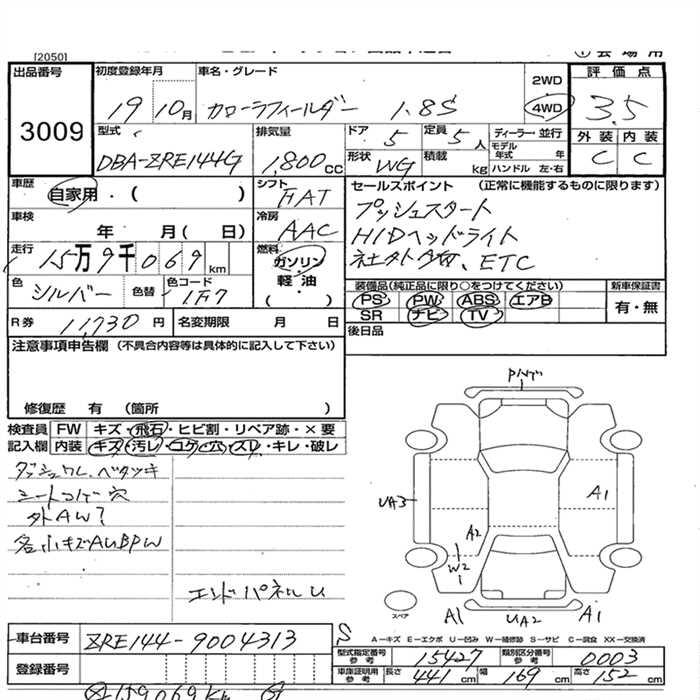 [2050]
① 会場用
出品番号
3009
初度登録年月
19 10月
車名・グレード
カローラフィールダー 1.8S
2WD
4WD
評価点
3.5
外装 内装
C C
型式
DBA-ZRE144G
排気量
1,800 CC
ドア 5
定員 5 人
ディーラー・並行
形状 WG
積載 kg
モデル年式 年
ハンドル 左・右
車歴
自家用・( )
シフト
FAT
車検
年 月( 日)
冷房
AAC
走行
15万9千069km
燃料
ガソリン・軽油
( ・ )
色
シルバー
色替
色コード
1F7
R券 11,730円
名変期限 月 日
セールスポイント (正常に機能するものに限ります)
プッシュスタート
HIDヘッドライト
社外ナビ、ETC
装備品(純正品に限り○をつけてください)
新車保証書
PS PW ABS エアB
SR ナビ TV
有・無
後日品
注意事項申告欄 (不具合内容等は具体的に記入して下さい)
修復歴 有 (箇所 )
検査員記入欄
FW キズ・飛石・ヒビ割・リペア跡・×要
内装 キズ・汚レ・コゲ・穴・スレ・キレ・破レ
ダッシュワレ、ベタツキ
シートコゲ穴
外AW?
各小キズAUBPW
エンドパネルU
Pハゲ
UA3
A1
A2
W2
1
スペア
A1
UA2
A1
A－キズ E－エクボ U－凹み W－補修跡 S－サビ C－腐食 XX－交換済
車台番号
ZRE144-9004313
登録番号
型式指定番号 参考
15427
類別区分番号 参考
0003
車庫証明用 参考
長さ 441 cm
幅 169 cm
高さ 152 cm
159069km